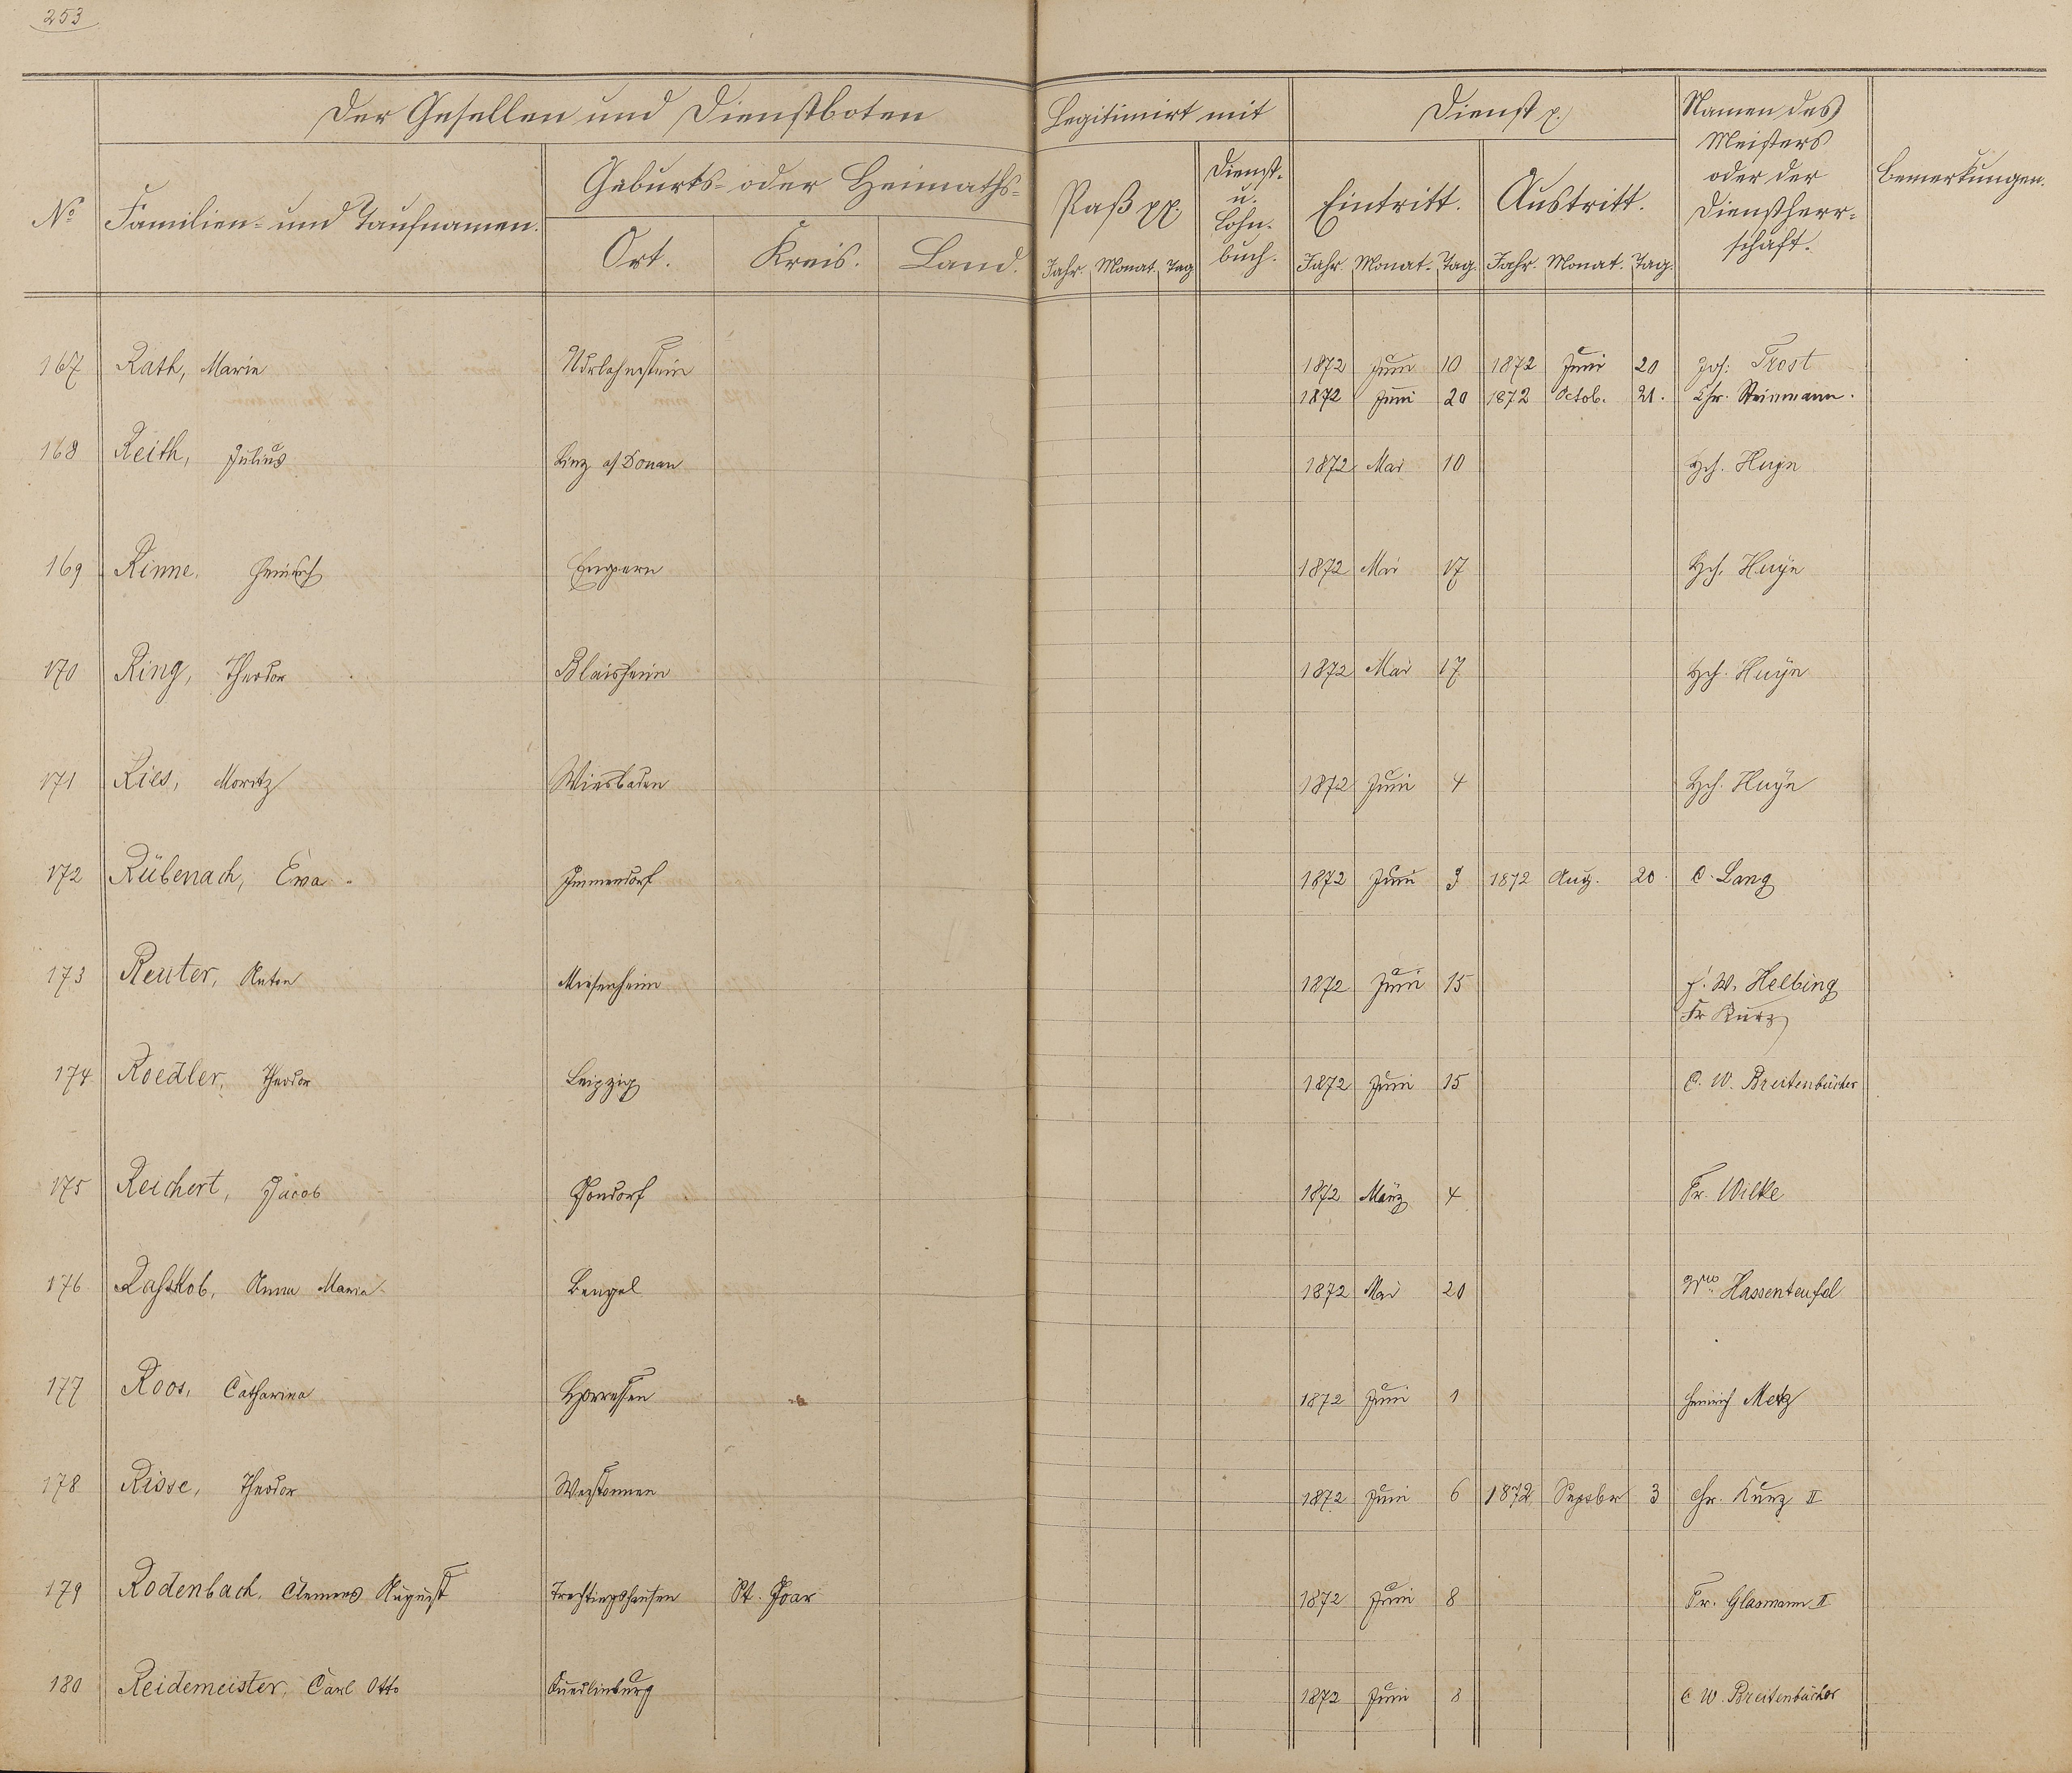 253
Der Gesellen und Dienstboten
Legitimirt mit
Dienst p.
Namen des
Meisters
oder der
Dienstherr-
schaft.
Bemerkungen.
No
Familien- und Taufnamen.
Geburts- oder Heimaths-
Ort. Kreis. Land.
Paß pp
Dienst-
u.
Lohn-
buch.
Eintritt. Austritt.
Jahr. Monat. Tag Jahr. Monat. Tag. Jahr. Monat. Tag.
167 Rath, Marie 1872 Juni 10 1872 Juni 20 Joh: Trost
1872 Juni 20 1872 Octob. 21. Chr. Steinmann.
168 Reith, Julius Linz a/ Donau 1872 Mai 10 Hch. Huyn
169 Rinne, Heinrich Engern 1872 Mai 17 Hch. Huyn
170 Ring, Theodor Blaisheim 1872 Mai 17 Hch. Huyn
171 Ries, Moritz Wiesbaden 1872 Juni 4 Hch. Huyn
172 Rübenach, Eva Immendorf 1872 Juni 3 1872 Aug. 20. C. Lang
173 Reuter, Anton Miesenheim 1872 Juni 15 F. W. Helbing
Fr Kurz
174 Roedler, Theodor Leipzig 1872 Juni 15 C. W. Breitenbücher
175 Reichert, Jacob Gondorf 1872 März 4 Fr. Wilke
176 Rahskob, Anna Maria Bengel 1872 Mai 20 Hassenteufel
177 Roos, Catharina Horressen 1872 Juni 1 Heinrich Metz
178 Risse, Theodor Westönnen 1872 Juni 6 1872 Septbr 3 Chr. Kurz II
179 Rodenbach, Clemens August Trechtingshausen St. Goar 1872 Juni 8 Fr. Glasmann II
180 Reidemeister, Carl Otto Quedlinburg 1872 Juni 8 C W. Breitenbücher